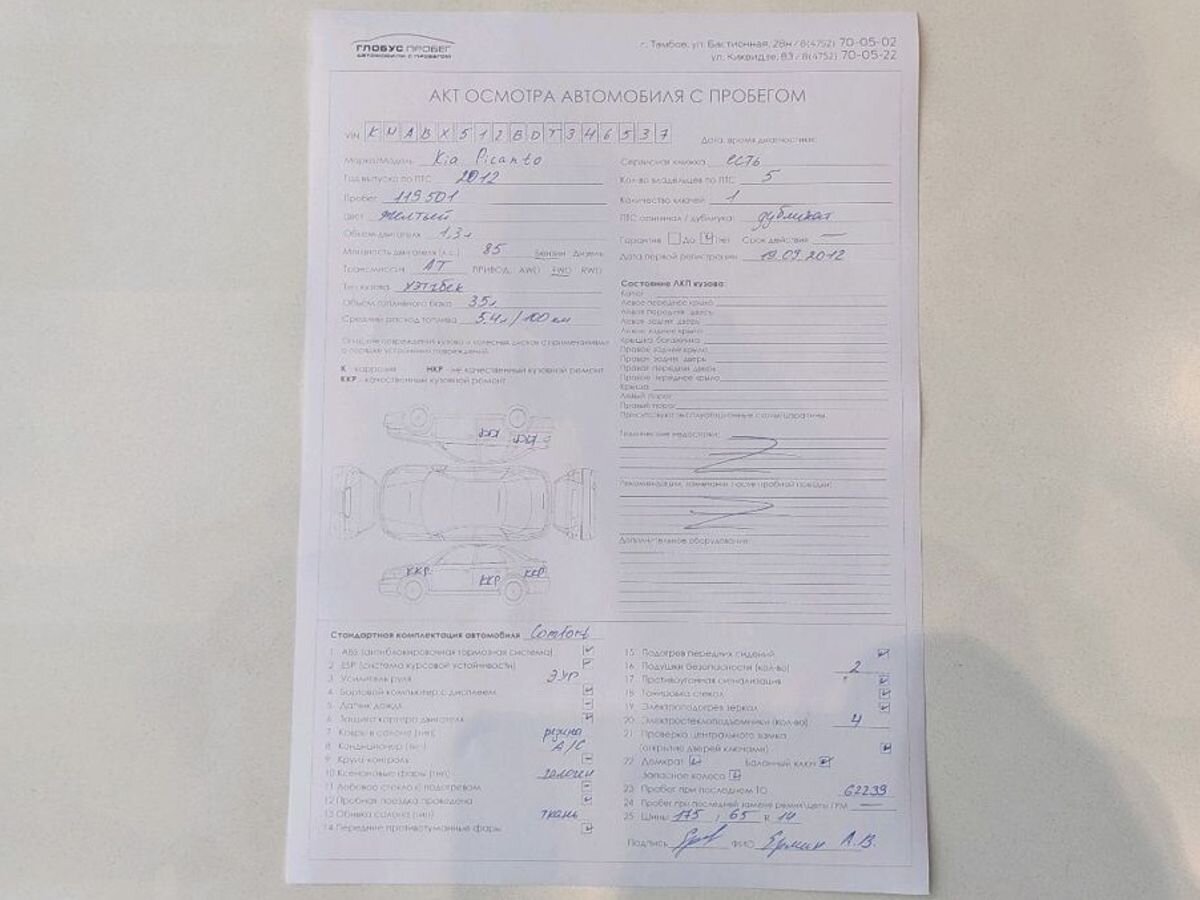 ГЛОБУС ПРОБЕГ
АВТОМОБИЛИ С ПРОБЕГОМ
г. Тамбов, ул. Бастионная, 28н / 8(4752) 70-05-02
ул. Киквидзе, 83 / 8(4752) 70-05-22
АКТ ОСМОТРА АВТОМОБИЛЯ С ПРОБЕГОМ
VIN K N A B X 5 1 2 B D T 3 4 6 5 3 7
Дата, время диагностики:
Марка/Модель Kia Picanto
Год выпуска по ПТС 2012
Пробег 119 501
Цвет желтый
Объем двигателя 1,3 л
Мощность двигателя (л.с.) 85 Бензин Дизель
Трансмиссия АТ ПРИВОД: AWD FWD RWD
Тип кузова хэтчбек
Объем топливного бака 35 л
Средний расход топлива 5,4 л/100 км
Сервисная книжка есть
Кол-во владельцев по ПТС 5
Количество ключей 1
ПТС оригинал / дубликат дубликат
Гарантия Да Нет Срок действия —
Дата первой регистрации 19.09.2012
Описание повреждений кузова и колесных дисков с примечаниями
о порядке устранения повреждений.
К - коррозия НКР - не качественный кузовной ремонт
ККР - качественный кузовной ремонт
Состояние ЛКП кузова:
Капот
Левое переднее крыло
Левая передняя дверь
Левая задняя дверь
Левое заднее крыло
Крышка багажника
Правое заднее крыло
Правая задняя дверь
Правая передняя дверь
Правое переднее крыло
Крыша
Левый порог
Правый порог
Присутствуют эксплуатационные сколы/царапины
Технические недостатки:
Рекомендации, замечания после пробной поездки:
Дополнительное оборудование:
ККР
ККР
ККР
ККР
ККР
Стандартная комплектация автомобиля Comfort
1 ABS (антиблокировочная тормозная система)
2 ESP (система курсовой устойчивости)
3 Усилитель руля ЭУР
4 Бортовой компьютер с дисплеем
5 Датчик дождя
6 Защита картера двигателя
7 Ковры в салоне (тип) резина
8 Кондиционер (тип) A/C
9 Круиз контроль
10 Ксеноновые фары (тип) галоген
11 Лобовое стекло с подогревом
12 Пробная поездка проведена
13 Обивка салона (тип) ткань
14 Передние противотуманные фары
15 Подогрев передних сидений
16 Подушки безопасности (кол-во) 2
17 Противоугонная сигнализация
18 Тонировка стекол
19 Электроподогрев зеркал
20 Электростеклоподъемники (кол-во) 4
21 Проверка центрального замка
(открытие дверей ключами)
22 Домкрат Балонный ключ
Запасное колесо
23 Пробег при последнем ТО 62239
24 Пробег при последней замене ремня/цепи ГРМ —
25 Шины 175 / 65 R 14
Подпись ФИО Ермин А.В.